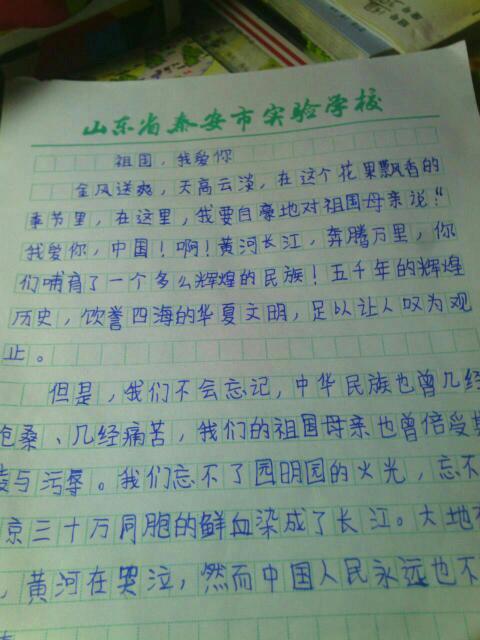 山东省泰安市实验学校
祖国,我爱你
金风送爽,天高云淡,在这个花果飘香的
季节里,在这里,我要自豪地对祖国母亲说:“
我爱你,中国!啊!黄河长江,奔腾万里,你
们哺育了一个多么辉煌的民族!五千年的辉煌
历史,饮誉四海的华夏文明,足以让人叹为观
止。
但是,我们不会忘记,中华民族也曾几经
沧桑、几经痛苦,我们的祖国母亲也曾倍受
与污辱。我们忘不了园明园的火光,忘不
京三十万同胞的鲜血染成了长江。大地
,黄河在哭泣,然而中国人民永远也不